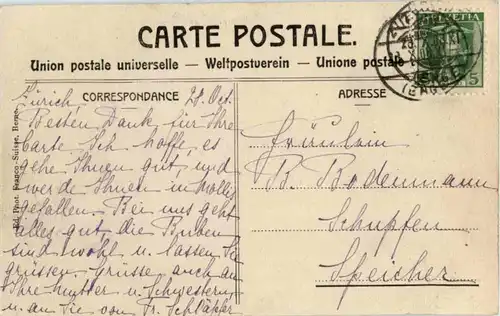 CARTE POSTALE.
Union postale universelle — Weltpostverein — Unione postale
HELVETIA
5
CORRESPONDANCE
ADRESSE
Zürich, 28. Oct.
Besten Dank für Ihre
Carte. Ich hoffe, es
gehe Ihnen gut, und
werde Ihnen in
gefallen. Bei uns geht
alles gut, die Buben
sind wohl u. lassen Sie
grüssen. Grüsse auch an
Ihre Mutter u. Schwestern
u. an Sie von Fr. Schläpfer
Fräulein
B. Bodenmann
Schupfen
Speicher
Ed. Phot. Franco-Suisse, Berne